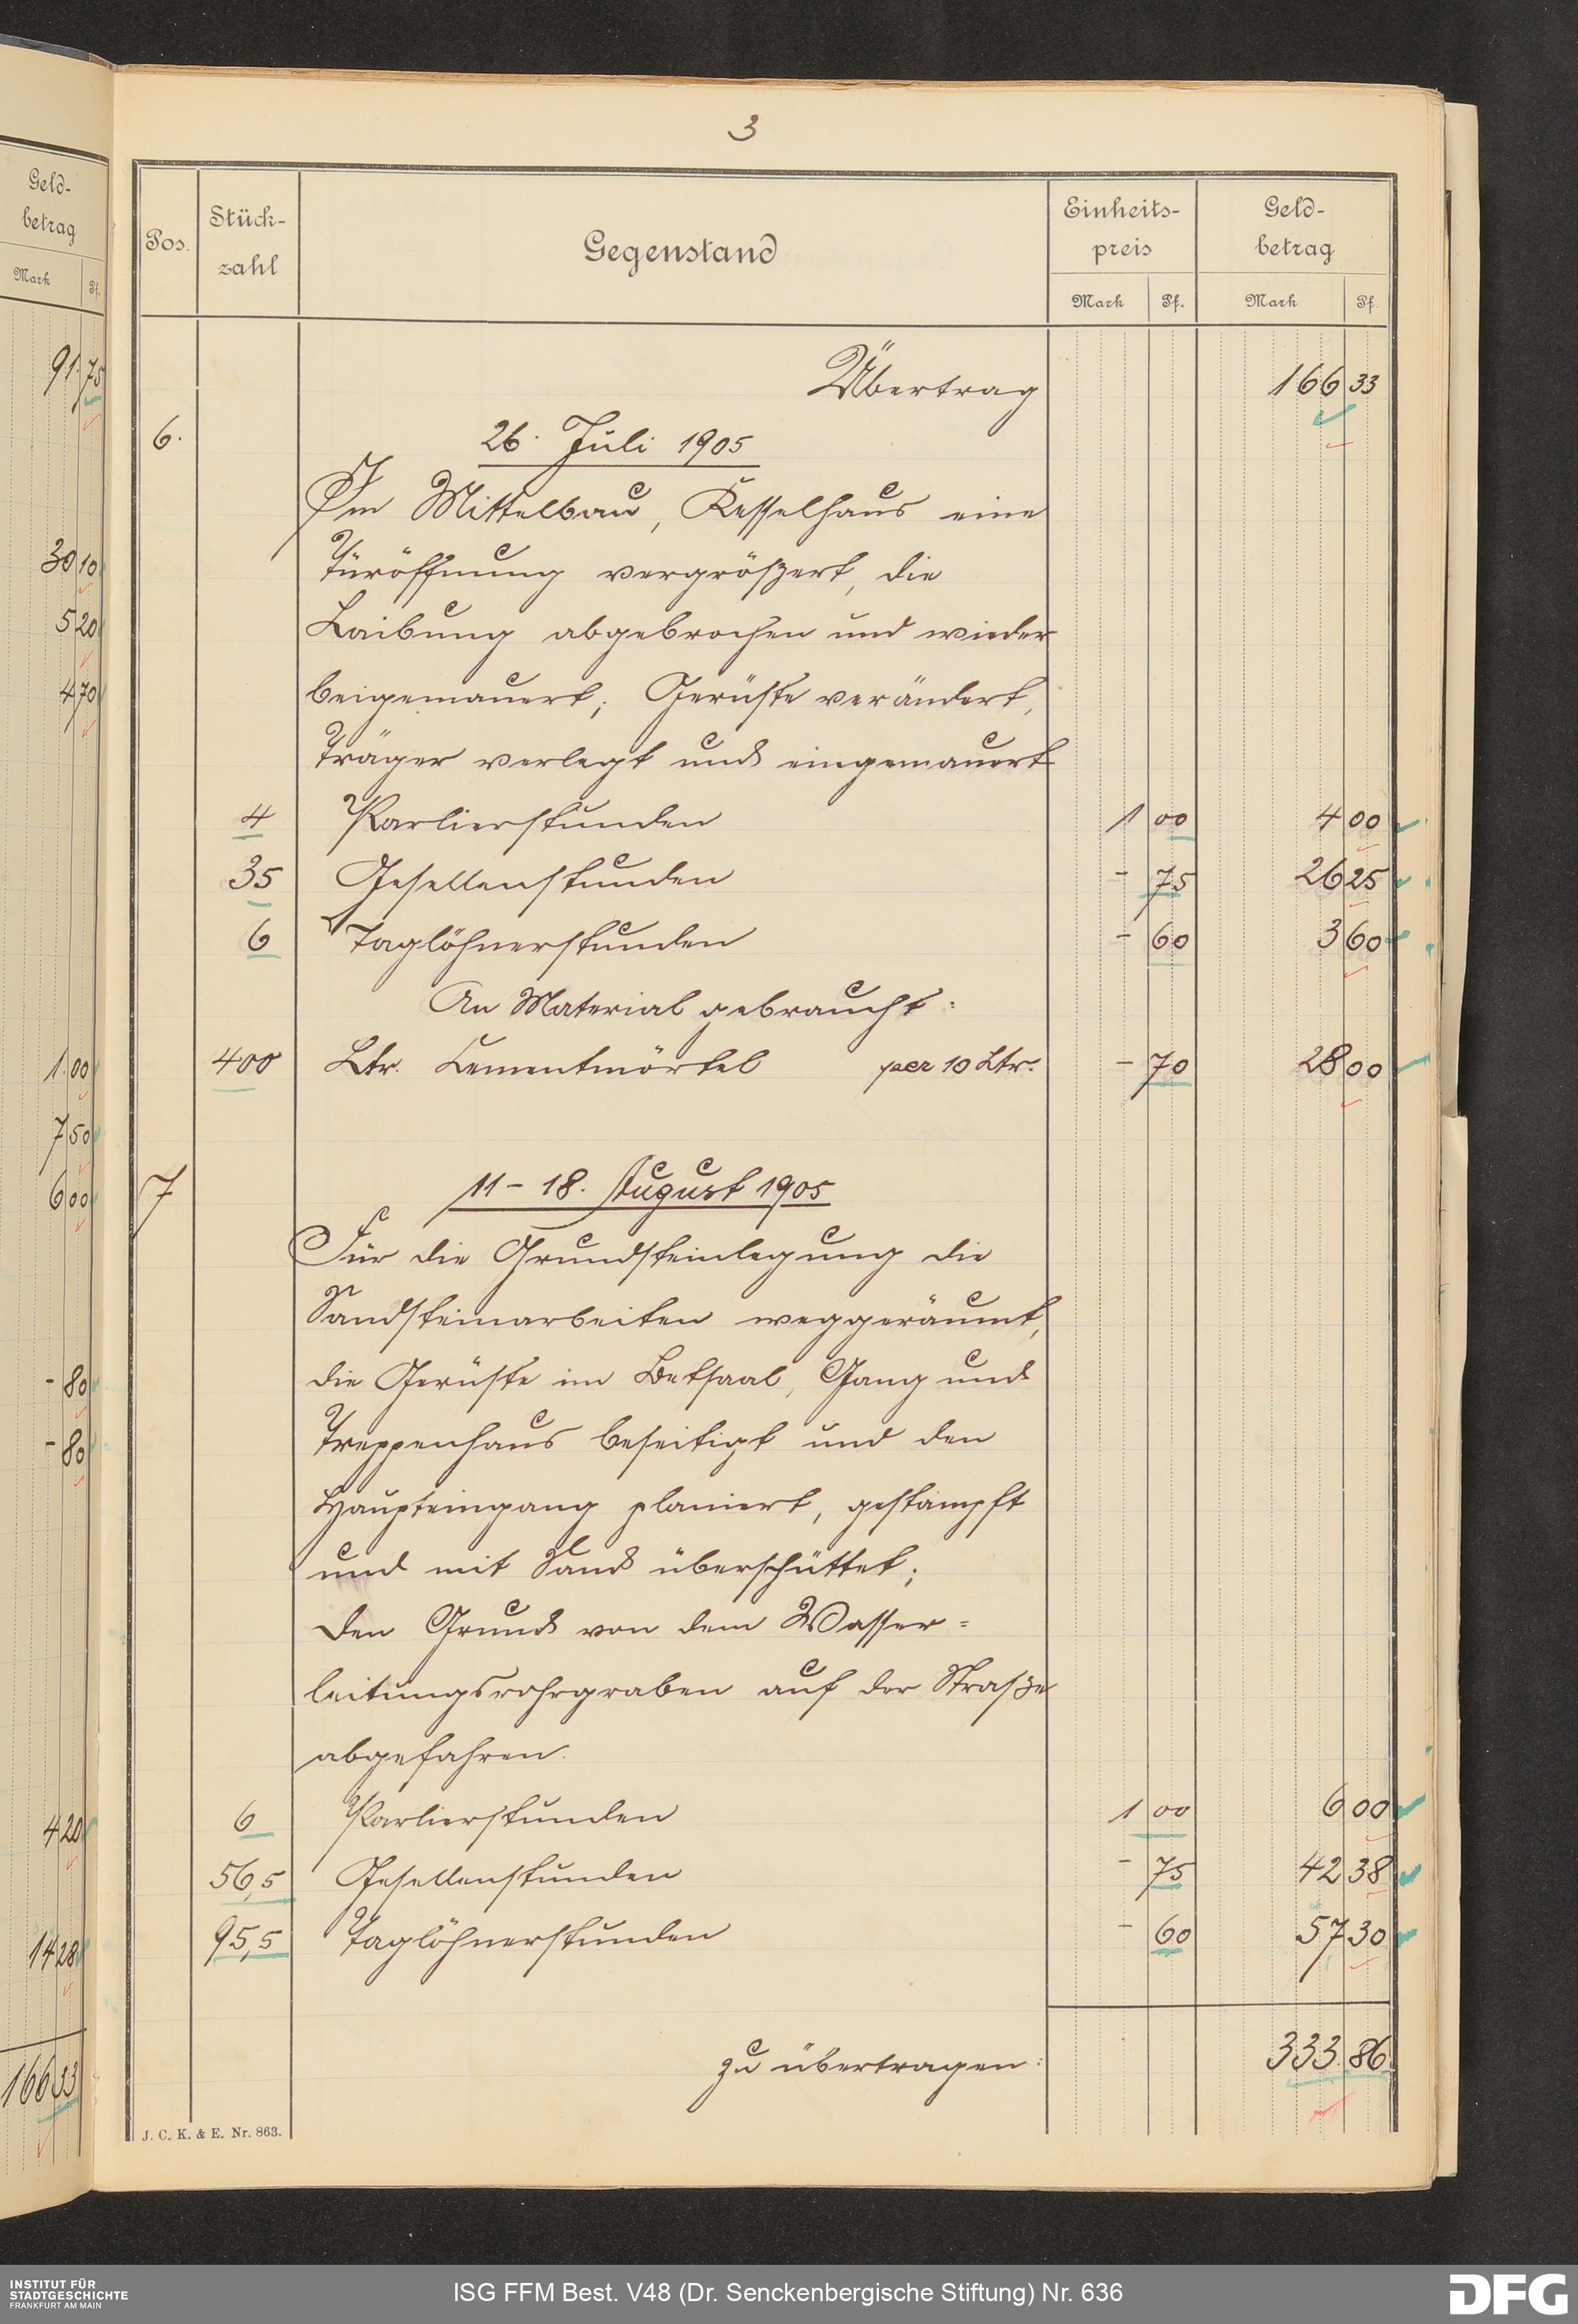 Geld-
betrag
Mark Pf.
91 75
30 10
5 20
4 70
1 00
7 50
6 00
- 80
- 80
4 20
14 28
166 33
3
Pos. Stück-zahl Gegenstand Einheits-preis Geld-betrag
Mark Pf. Mark Pf.
Übertrag 166 33
6. 26. Juli 1905
Im Mittelbau, Kesselhaus eine
Türöffnung vergrößert, die
Laibung abgebrochen und wieder
beigemauert; Gerüste verändert,
Träger verlegt und eingemauert
4 Parlierstunden 1 00 4 00
35 Gesellenstunden - 75 26 25
6 Taglöhnerstunden - 60 3 60
An Material gebraucht:
400 Ltr. Cementmörtel per 10 Ltr. - 70 28 00
7 11-18. August 1905
Für die Grundsteinlegung die
Sandsteinarbeiten weggeräumt,
die Gerüste im Betsaal, Gang und
Treppenhaus beseitigt und den
Haupteingang planiert, gestampft
und mit Sand überschüttet;
den Grund von dem Wasser=
leitungsrohrgraben auf der Straße
abgefahren.
6 Parlierstunden 1 00 6 00
56,5 Gesellenstunden - 75 42 38
95,5 Taglöhnerstunden - 60 57 30
zu übertragen: 333. 86
J. C. K. & E. Nr. 863.
INSTITUT FÜR
STADTGESCHICHTE
FRANKFURT AM MAIN
ISG FFM Best. V48 (Dr. Senckenbergische Stiftung) Nr. 636
DFG